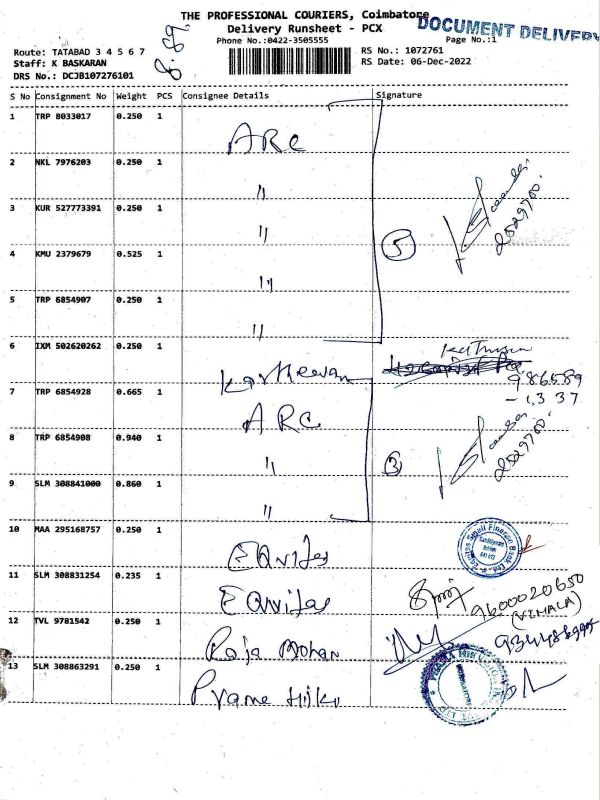 THE PROFESSIONAL COURIERS, Coimbatore
DOCUMENT DELIVERY
Delivery Runsheet - PCX
Phone No.:0422-3505555
Page No.:1
8.89.
Route: TATABAD 3 4 5 6 7
RS No.: 1072761
Staff: K BASKARAN
RS Date: 06-Dec-2022
DRS No.: DCJB107276101
S No Consignment No Weight PCS Consignee Details Signature
1 TRP 8033017 0.250 1 ARC
2 NKL 7976203 0.250 1 "
3 KUR 527773391 0.250 1 "
5
2529700.
4 KMU 2379679 0.525 1 "
5 TRP 6854907 0.250 1 "
6 IXM 502620262 0.250 1 Kartheevan
986589
-1337
7 TRP 6854928 0.665 1 ARC
8 TRP 6854908 0.940 1 "
3
2529700.
9 SLM 308841000 0.860 1 "
10 MAA 295168757 0.250 1 Equitas
Equitas Small Finance Bank Ltd
11 SLM 308831254 0.235 1 Equitas
9600020650
(VIMALA)
12 TVL 9781542 0.250 1 Raja Mohan
13 SLM 308863291 0.250 1